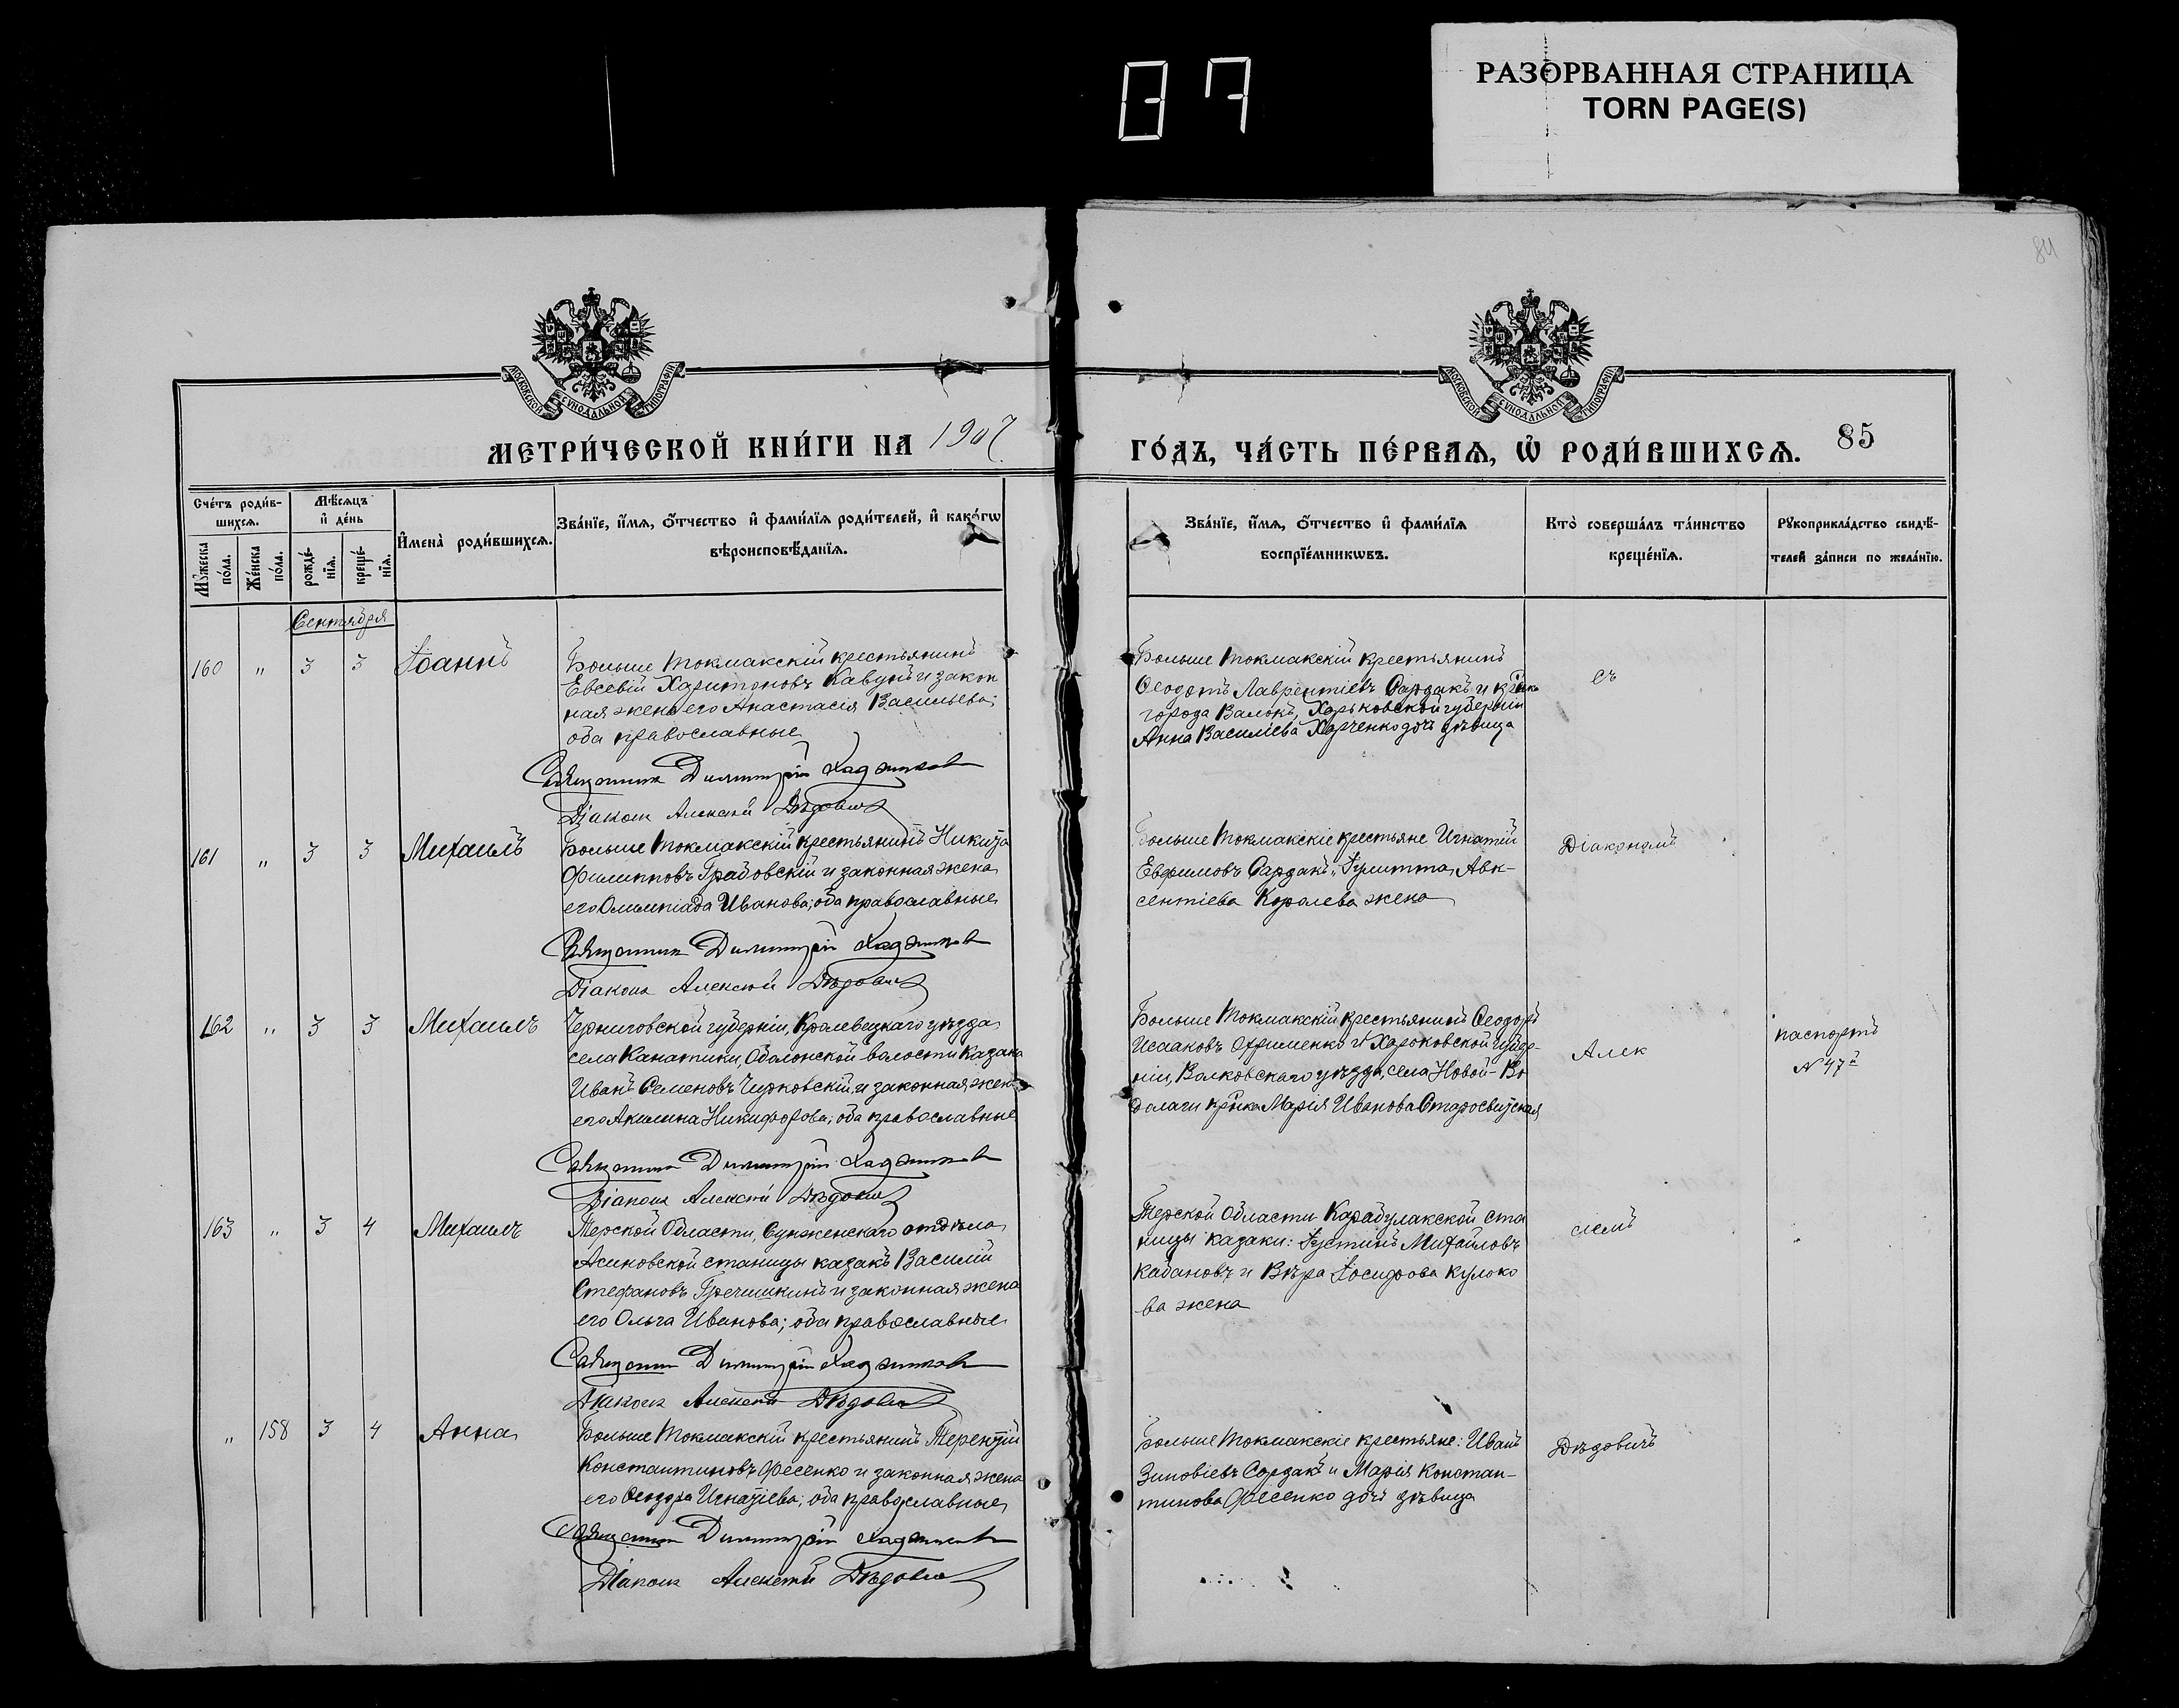 РАЗОРВАННАЯ СТРАНИЦА
TORN PAGE(S)
87
84
МОСКОВСКОЙ СѴНОДАЛЬНОЙ ТИПОГРАФІИ
МОСКОВСКОЙ СѴНОДАЛЬНОЙ ТИПОГРАФІИ
МЕТРИ́ЧЕСКОЙ КНИ́ГИ НА 1907
ГО́ДЪ, ЧА́СТЬ ПЕ́РВАѦ, Ѡ҆ РОДИ́ВШИХСѦ. 85
Сче́тъ роди́в-
шихсѧ.
Мѣ́сѧцъ
и҆ де́нь
И҆мена̀ роди́вшихсѧ.
Зва́нїе, и҆́мѧ, ѻ҆́тчество и҆ фами́лїѧ роди́телей, и҆ како́гѡ
вѣроисповѣ́данїѧ.
Мꙋ́жеска
по́ла.
Же́нска
по́ла.
рожде́-
нїѧ.
креще́-
нїѧ.
Зва́нїе, и҆́мѧ, ѻ҆́тчество и҆ фами́лїѧ
воспрїе́мникѡвъ.
Кто̀ соверша́лъ та́инство
креще́нїѧ.
Рꙋкоприкла́дство свидѣ́-
телей за́писи по жела́нїю.
Сентября
160 " 3 3 Іоаннъ
Больше Токмакскій крестьянинъ
Евсевій Харитоновъ Кавунъ и закон
ная жена его Анастасія Васильева;
оба православные
Священникъ Димитрій Хаджиновъ
Діаконъ Алексій Дѣдовичъ
Больше Токмакскій крестьянинъ
Ѳеодотъ Лаврентіевъ Сардакъ и кр-нка
города Валокъ, Харьковской губерніи
Анна Василіева Харченко дочь дѣвица
съ
161 " 3 3 Михаилъ
Больше Токмакскій крестьянинъ Никита
Филипповъ Грабовскій и законная жена
его Олимпіада Иванова; оба православные
Священникъ Димитрій Хаджиновъ
Діаконъ Алексій Дѣдовичъ
Больше Токмакскіе крестьяне Игнатій
Евфимовъ Сардакъ, Іулитта Авк-
сентіева Королева жена
Діакономъ
162 " 3 3 Михаилъ
Черниговской губерніи, Кролевецкаго уѣзда
села Канатики, Оболонской волости казакъ
Иванъ Семеновъ Чирковскій, и законная жена
его Акилина Никифорова; оба православные
Священникъ Димитрій Хаджиновъ
Діаконъ Алексій Дѣдовичъ
Больше Токмакскій крестьянинъ Ѳеодоръ
Исааковъ Охрименко и Харьковской губер-
ніи, Валковскаго уѣзда, села Новой-Во
долаги кр-нка Марія Иванова Старосвитская
Алек
паспортъ
№ 47
163 " 3 4 Михаилъ
Терской Области, Сунженскаго отдѣла
Асиновской станицы казакъ Василій
Стефановъ Гречишкинъ и законная жена
его Ольга Иванова; оба православные
Священникъ Димитрій Хаджиновъ
Діаконъ Алексій Дѣдовичъ
Терской Области Карабулакской ста
ницы казаки: Іустинъ Михайловъ
Кабановъ и Вѣра Іосифова Кулоко
ва жена
сіемъ
" 158 3 4 Анна
Больше Токмакскій крестьянинъ Терентій
Константиновъ Фесенко и законная жена
его Ѳеодора Игнатіева; оба православные
Священникъ Димитрій Хаджиновъ
Діаконъ Алексій Дѣдовичъ
Больше Токмакскіе крестьяне: Иванъ
Зиновіевъ Сардакъ и Марія Констан-
тинова Фесенко дочь дѣвица
Дѣдовичъ